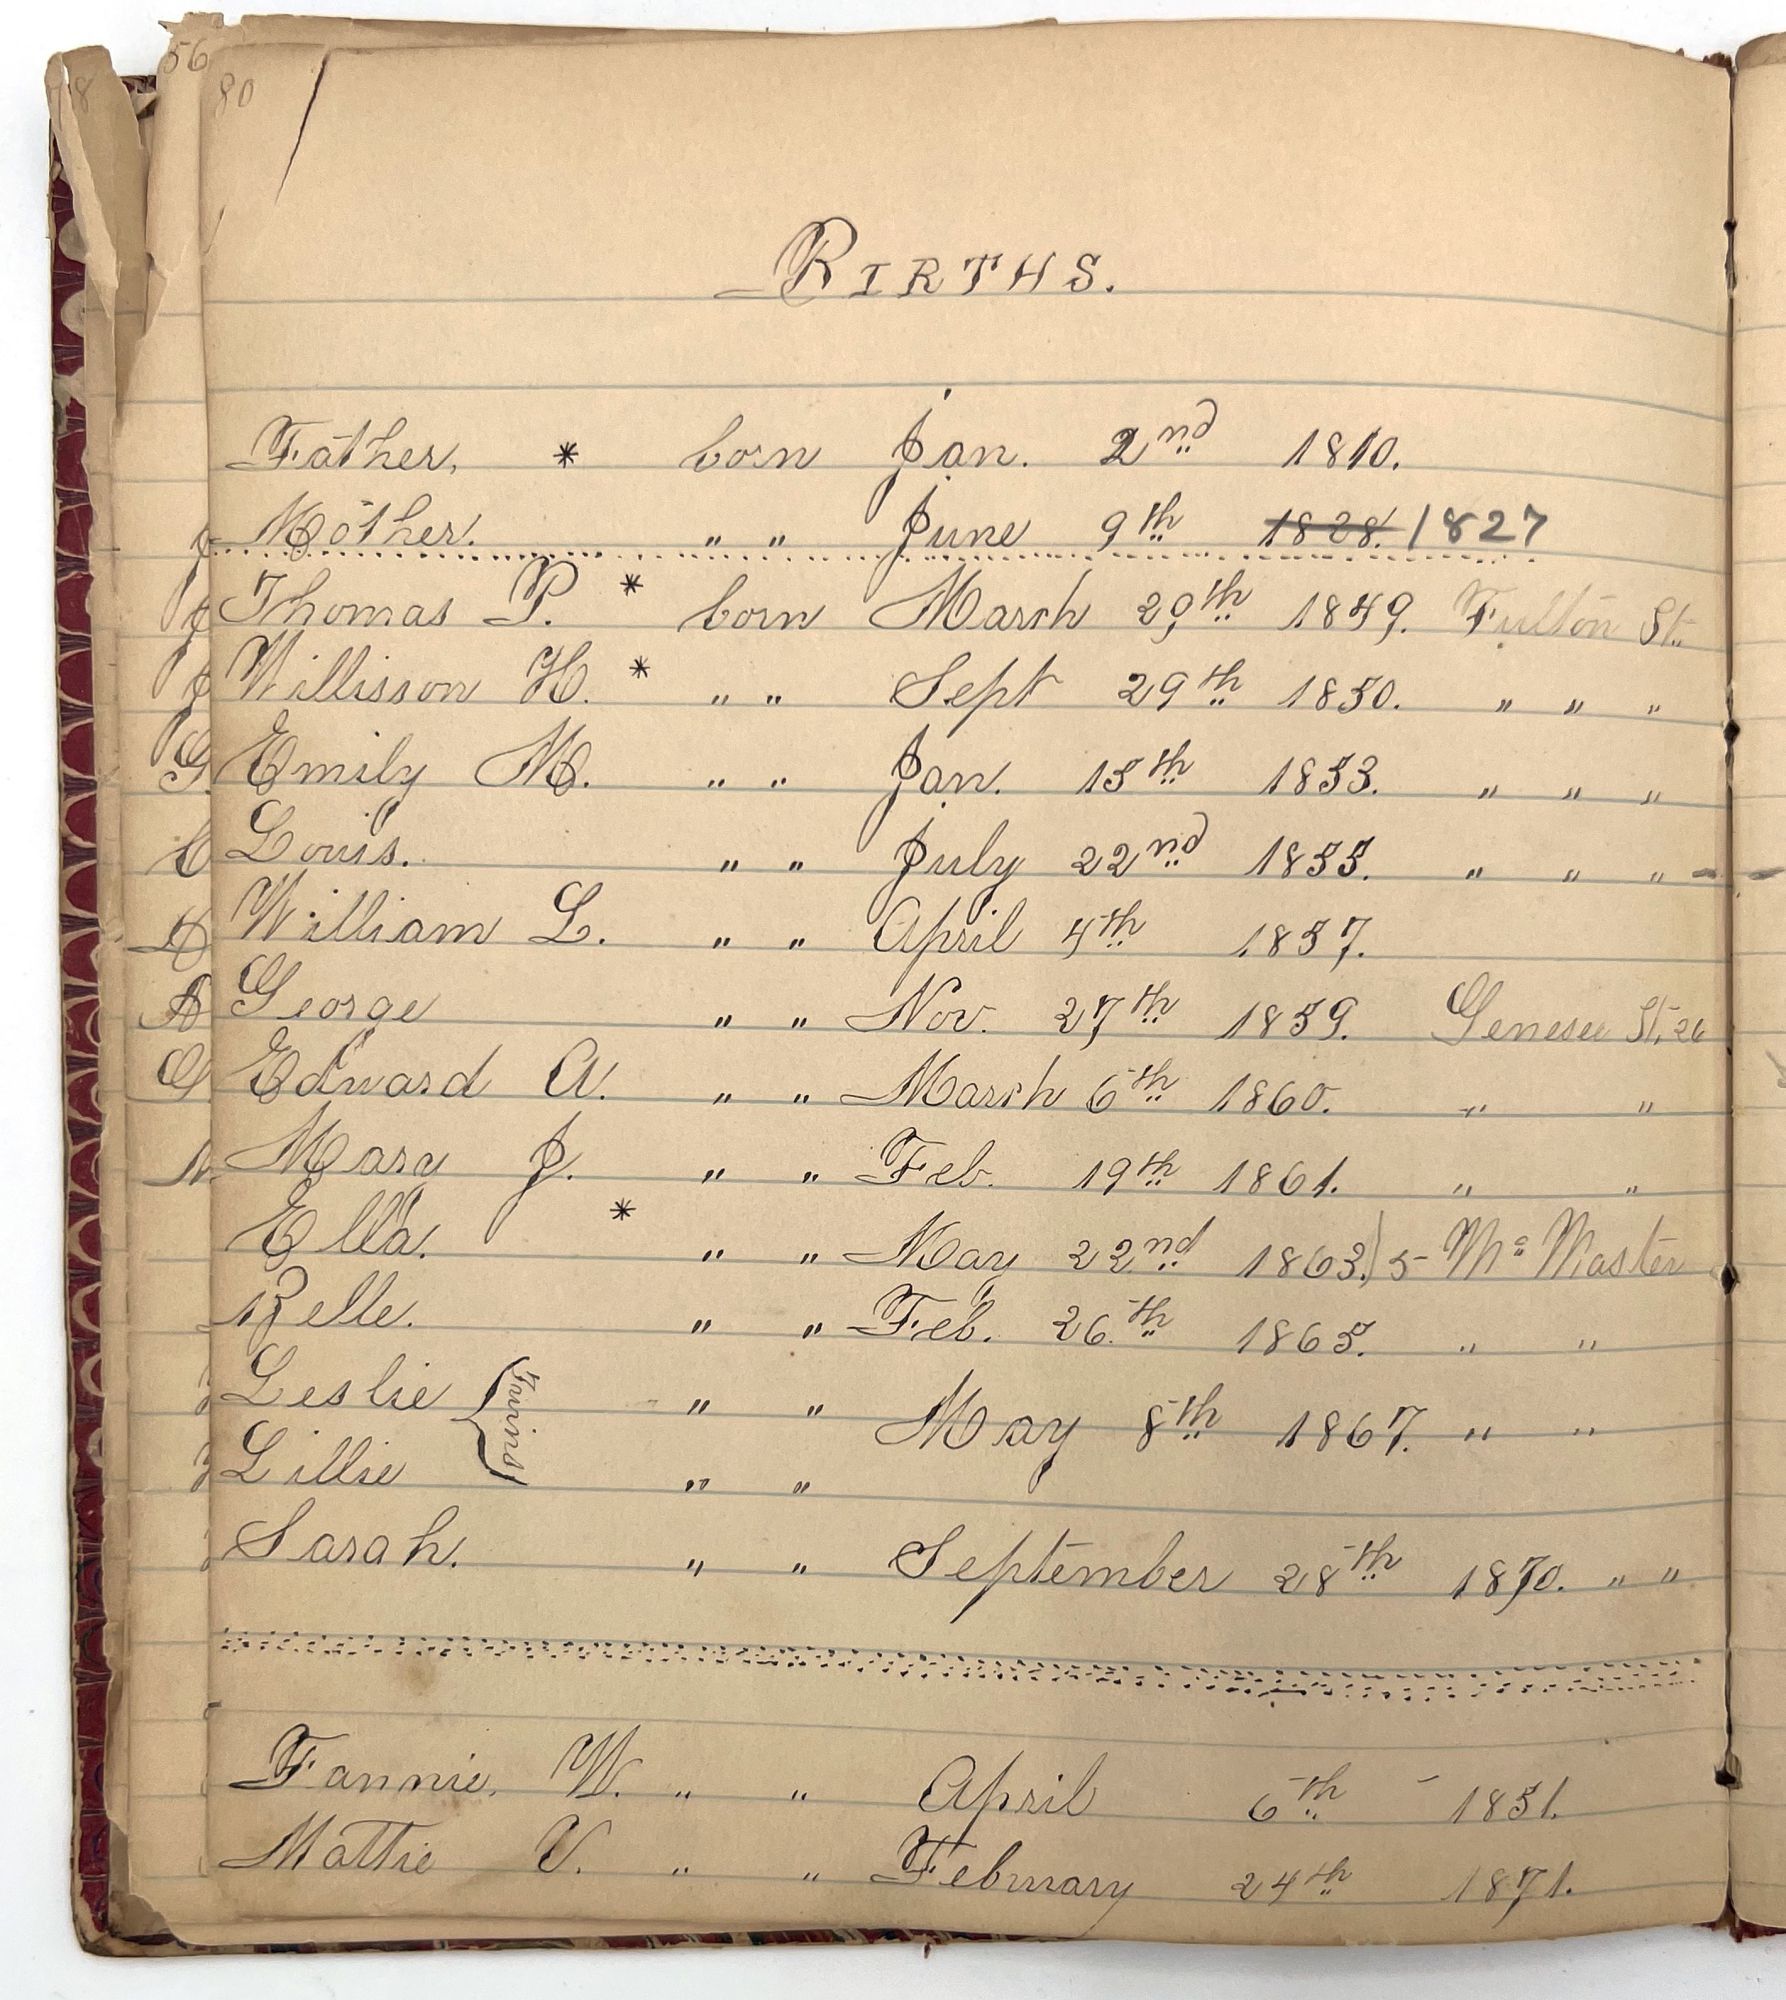 56
80
BIRTHS.
Father, * born Jan. 2nd 1810.
Mother. " " June 9th 1828. 1827
Thomas P. * born March 29th 1849. Fulton St.
Willisson H. * " " Sept 29th 1850. " " "
Emily M. " " Jan. 15th 1853. " " "
Louis. " " July 22nd 1855. " " "
William L. " " April 4th 1857.
George " " Nov. 27th 1859. Genesee St, 26
Edward A. " " March 6th 1860. " "
Mary J. " " Feb. 19th 1861. " "
Ella. * " " May 22nd 1863. 5 Mc Master
Belle. " " Feb. 26th 1865. " "
Leslie } Twins " " May 8th 1867. " "
Lillie " "
Sarah. " " September 28th 1870. " "
Fannie, W. " " April 6th - 1851.
Mattie V. " " February 24th 1871.